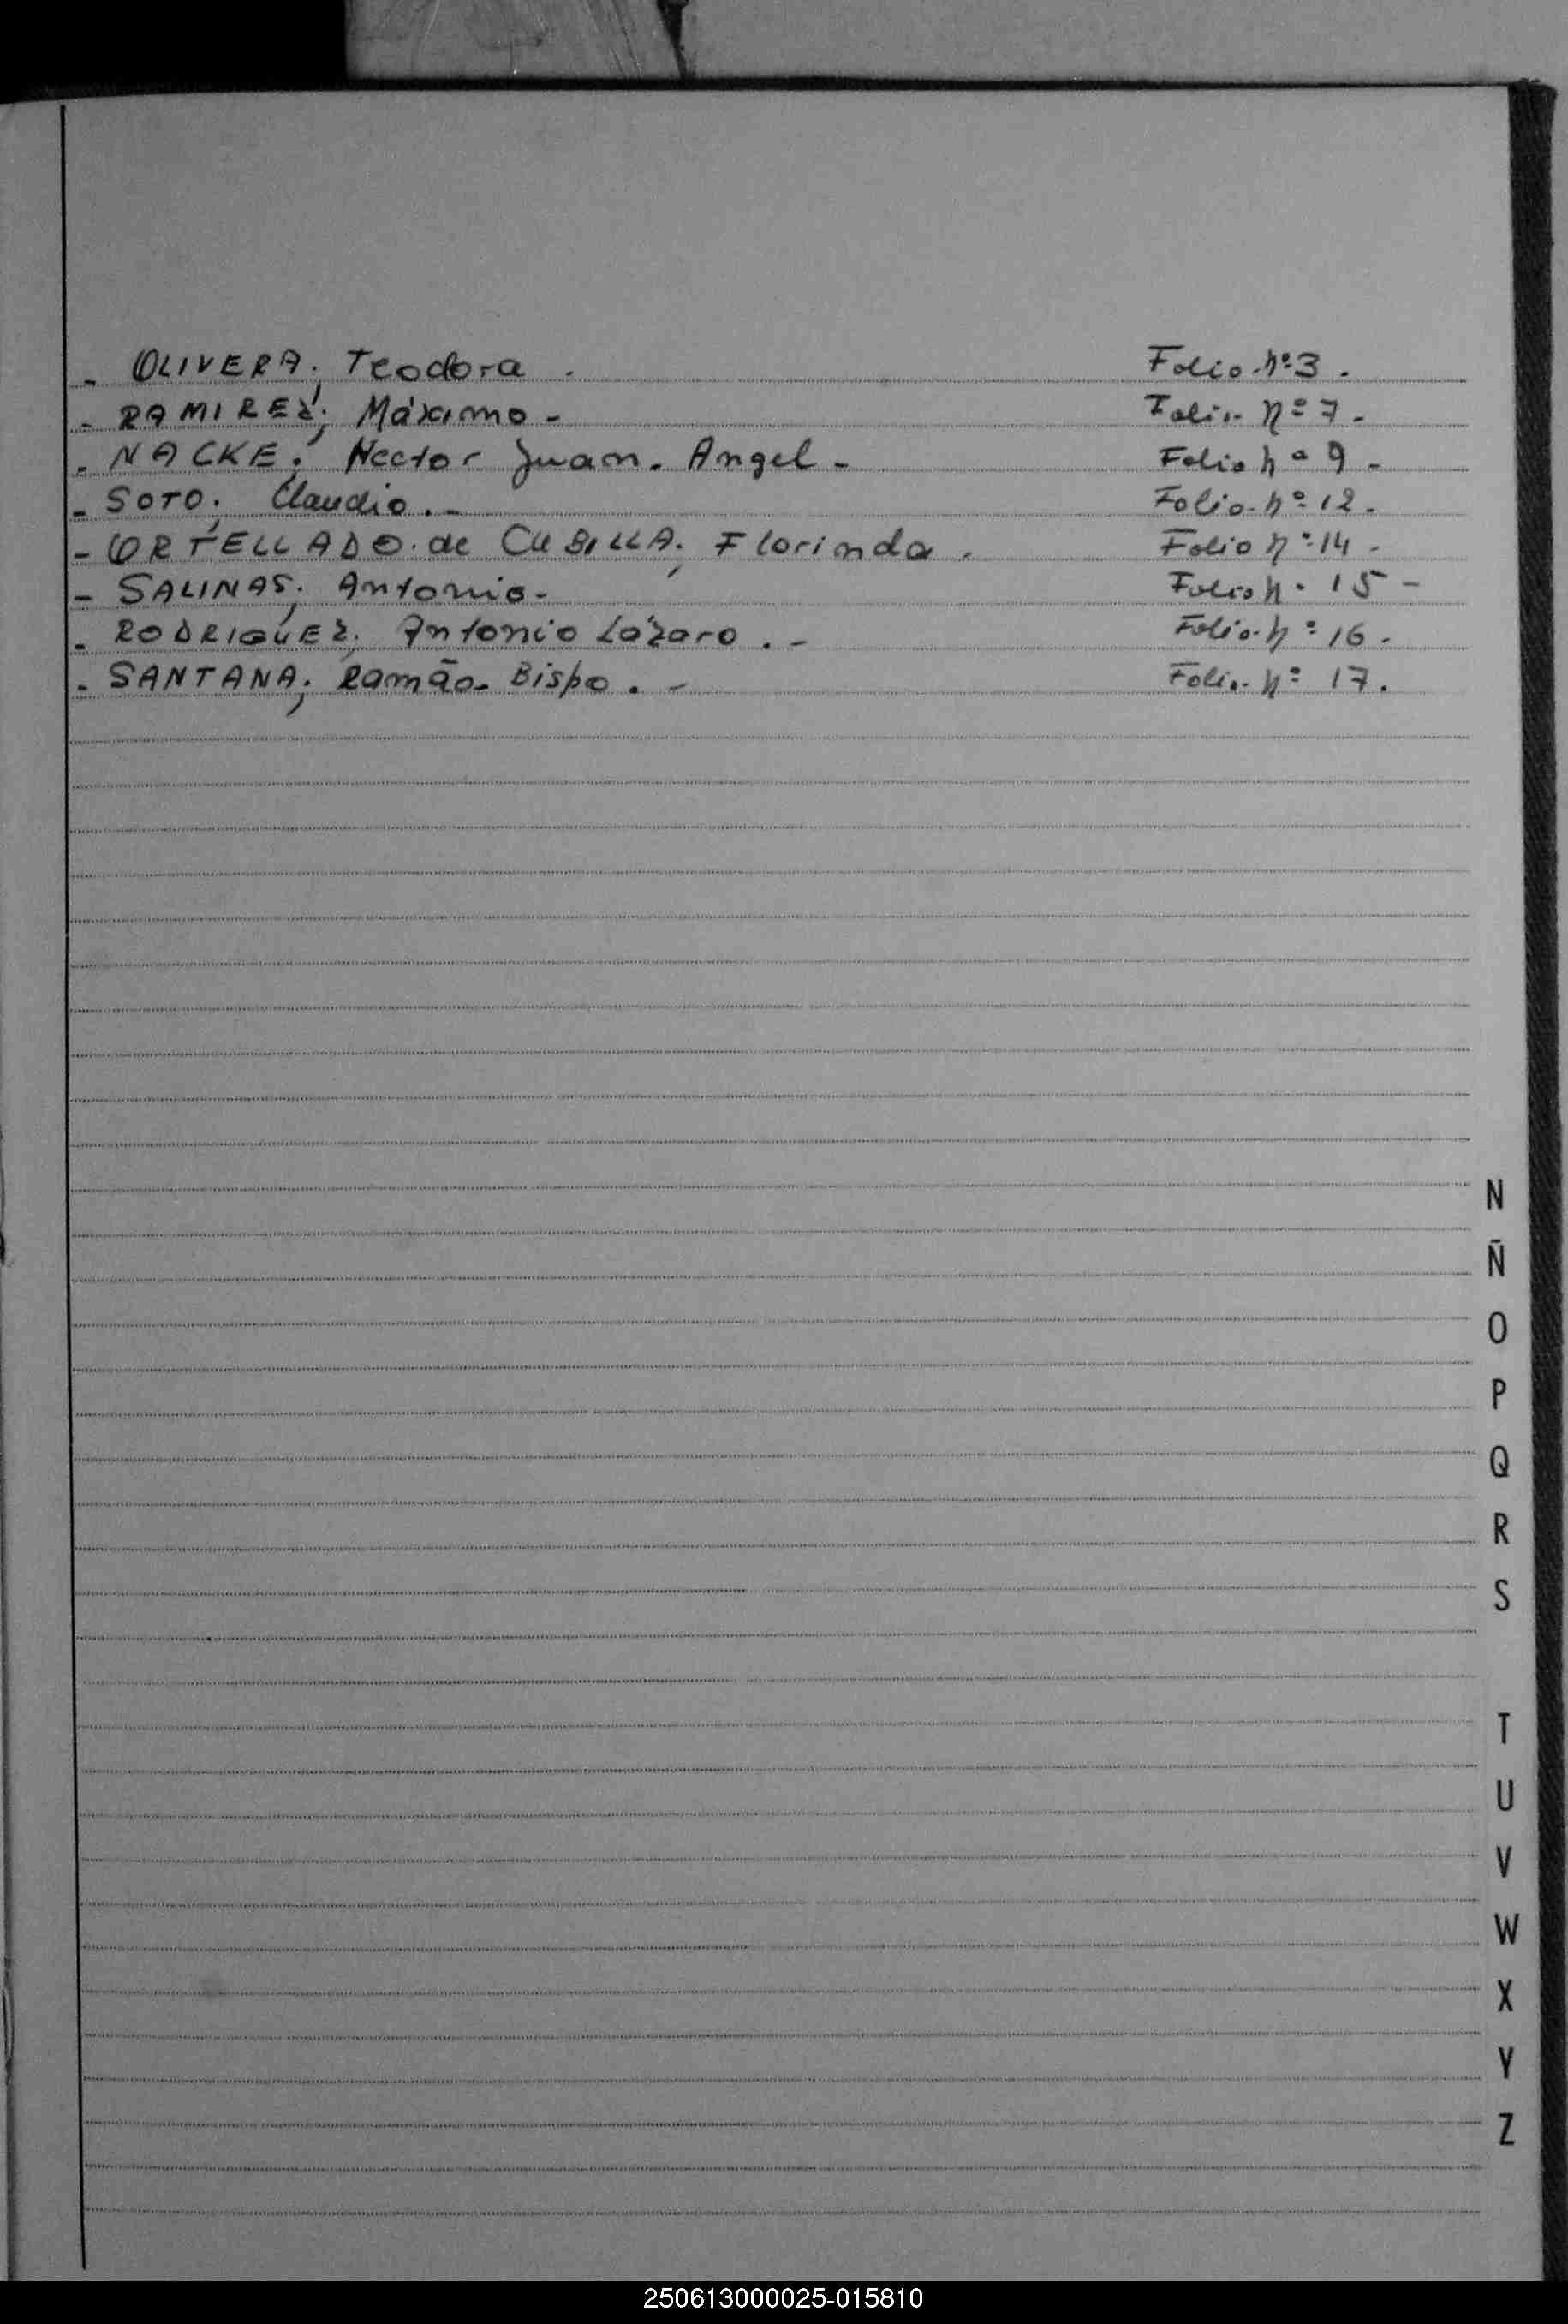 - OLIVERA; Teodora. Folio. nº 3.
- RAMIREZ; Máximo - Folio. nº 7.-
- NACKE; Hector Juan. Angel - Folio nº 9.-
- SOTO; Claudio.- Folio. nº 12.
- ORTELLADO. de CUBILLA; Florinda. Folio nº 14 -
- SALINAS; Antonio.- Folio nº 15 -
- RODRIGUEZ; Antonio Lázaro.- Folio. nº 16.
- SANTANA; Ramão. Bispo.- Folio. nº 17.
N
Ñ
O
P
Q
R
S
T
U
V
W
X
Y
Z
250613000025-015810